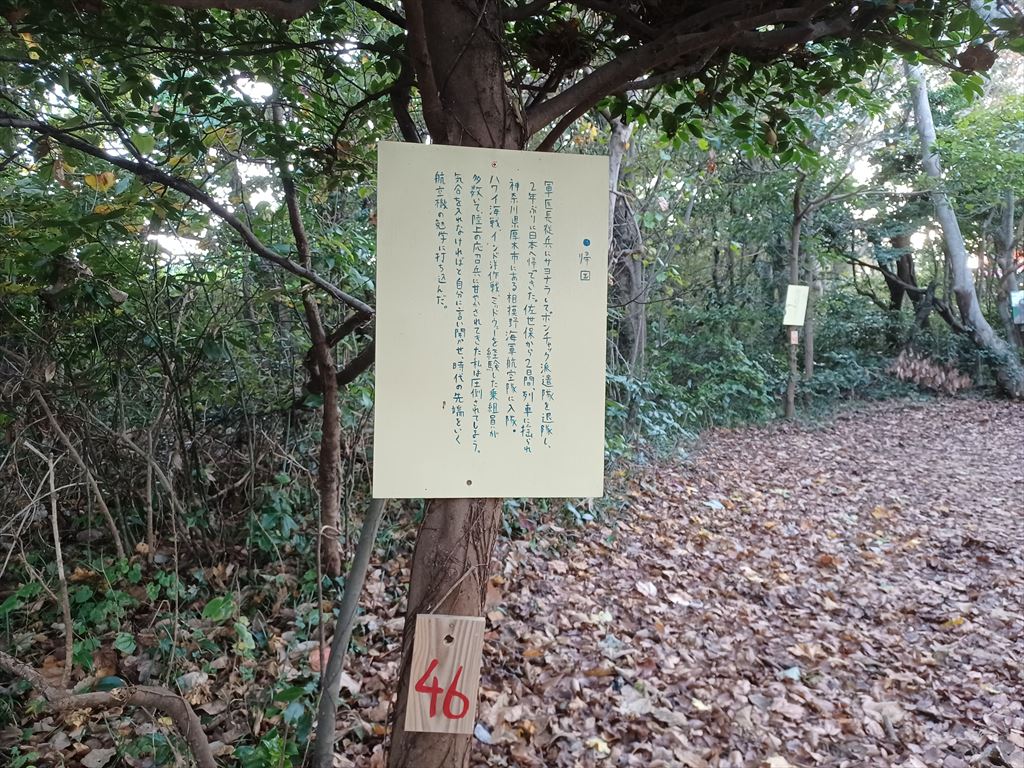 ●帰国
軍医長従兵にサヨナラしてポンチャック派遣隊を退隊し、
2年ぶりに日本へ帰ってきた。佐世保から2日間、列車に揺られ
神奈川県厚木市にある相模野海軍航空隊に入隊。
ハワイ海戦、インド洋作戦、ミッドウェーを経験した乗組員が
多数いて陸上の応召兵に甘やかされてきた私は圧倒されてしまう。
気合を入れなければと自分に言い聞かせ時代の先端をいく
航空機の勉学に打ち込んだ。
46